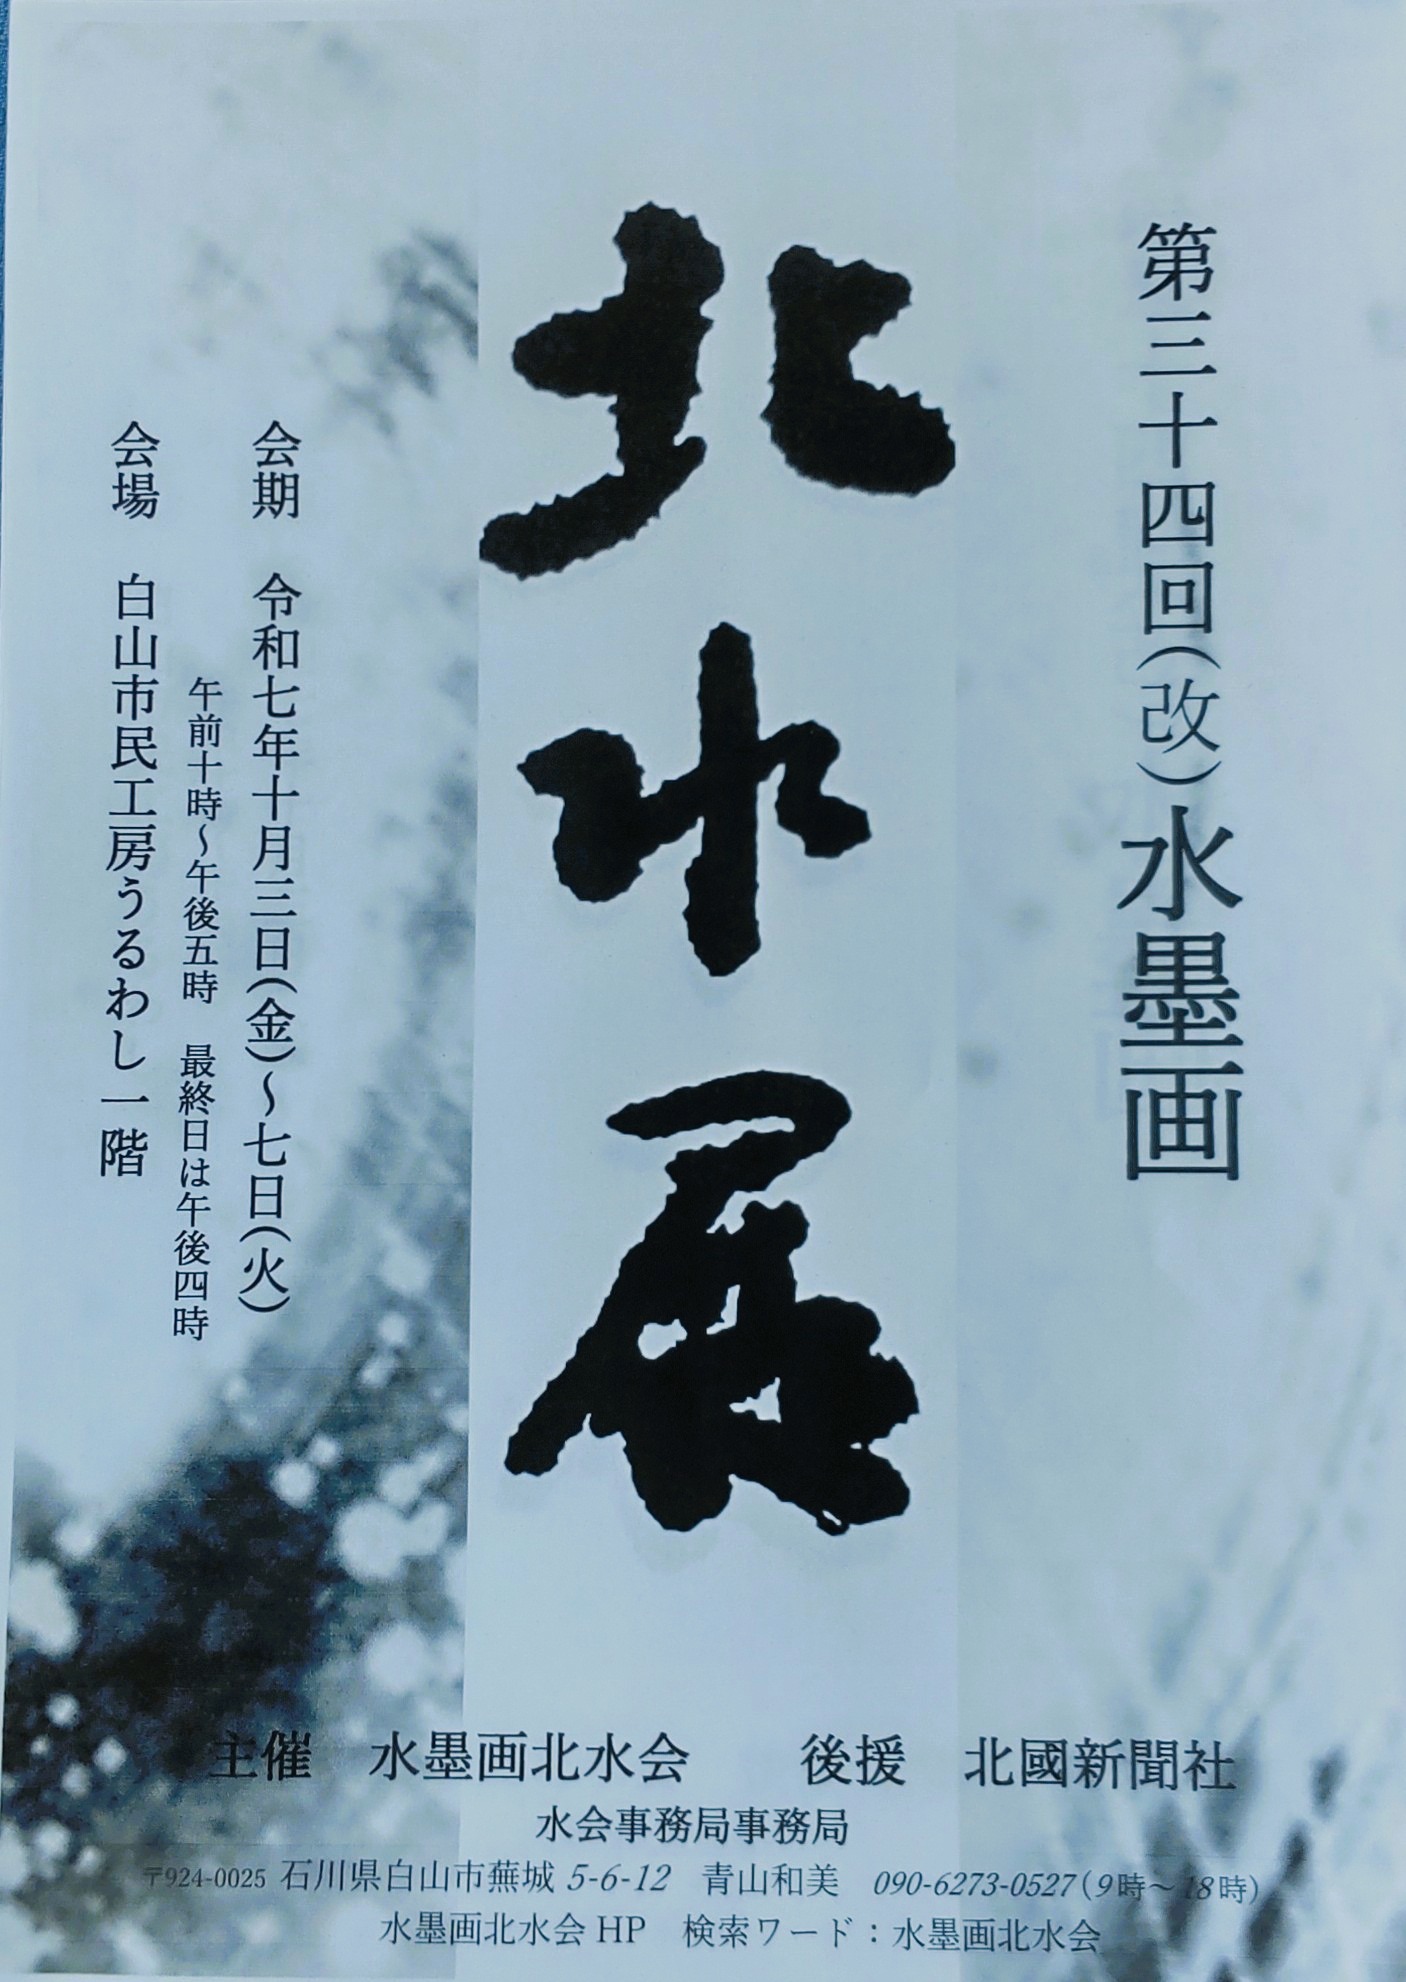 第三十四回(改)水墨画
北水展
会期　令和七年十月三日(金)～七日(火)
午前十時～午後五時　最終日は午後四時
会場　白山市民工房うるわし一階
主催　水墨画北水会　　後援　北國新聞社
水会事務局事務局
〒924-0025 石川県白山市蕪城 5-6-12　青山和美　090-6273-0527(9時～18時)
水墨画北水会 HP　検索ワード：水墨画北水会